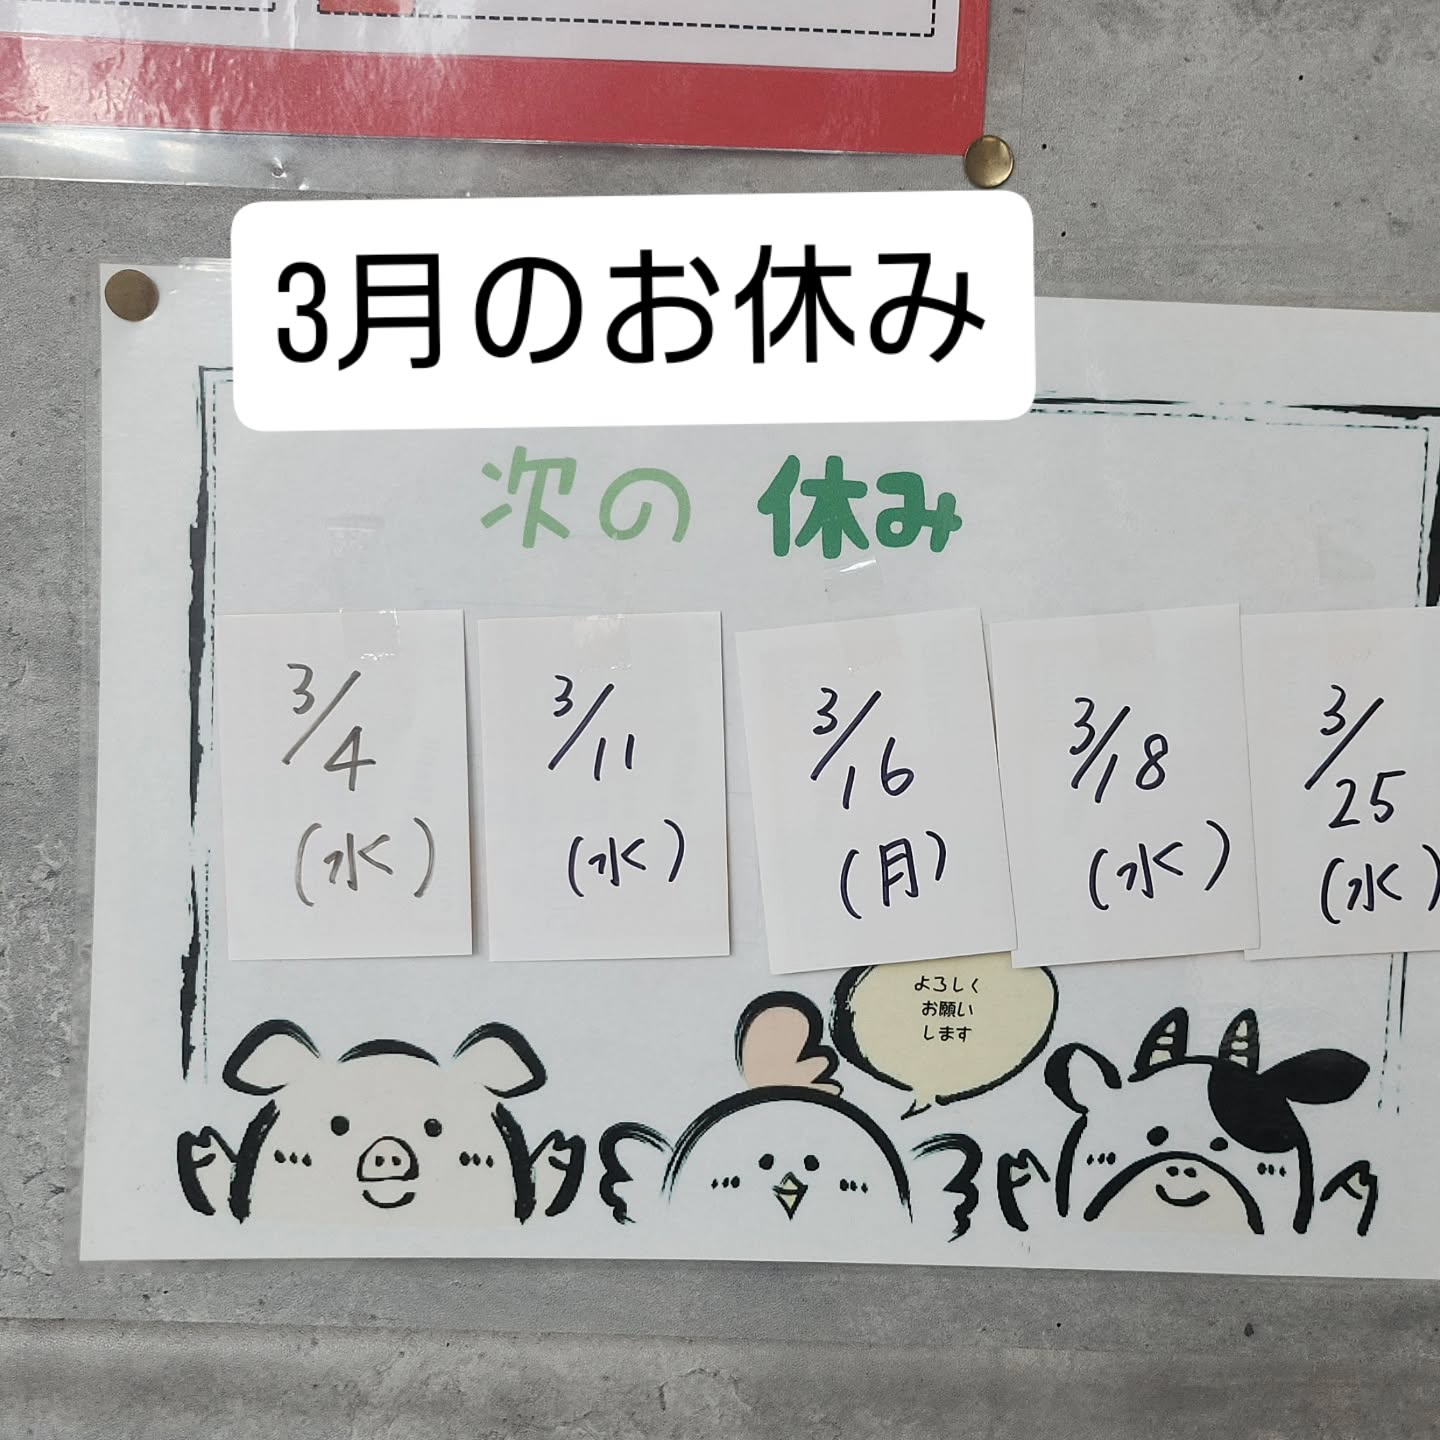 3月のお休み
次の 休み
3/4
(水)
3/11
(水)
3/16
(月)
3/18
(水)
3/25
(水)
よろしく
お願い
します